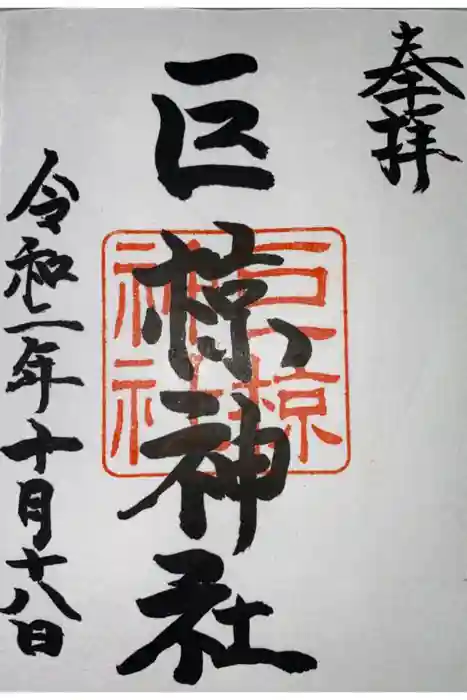 奉拝
巨椋神社
巨椋
神社
令和二年十月十八日